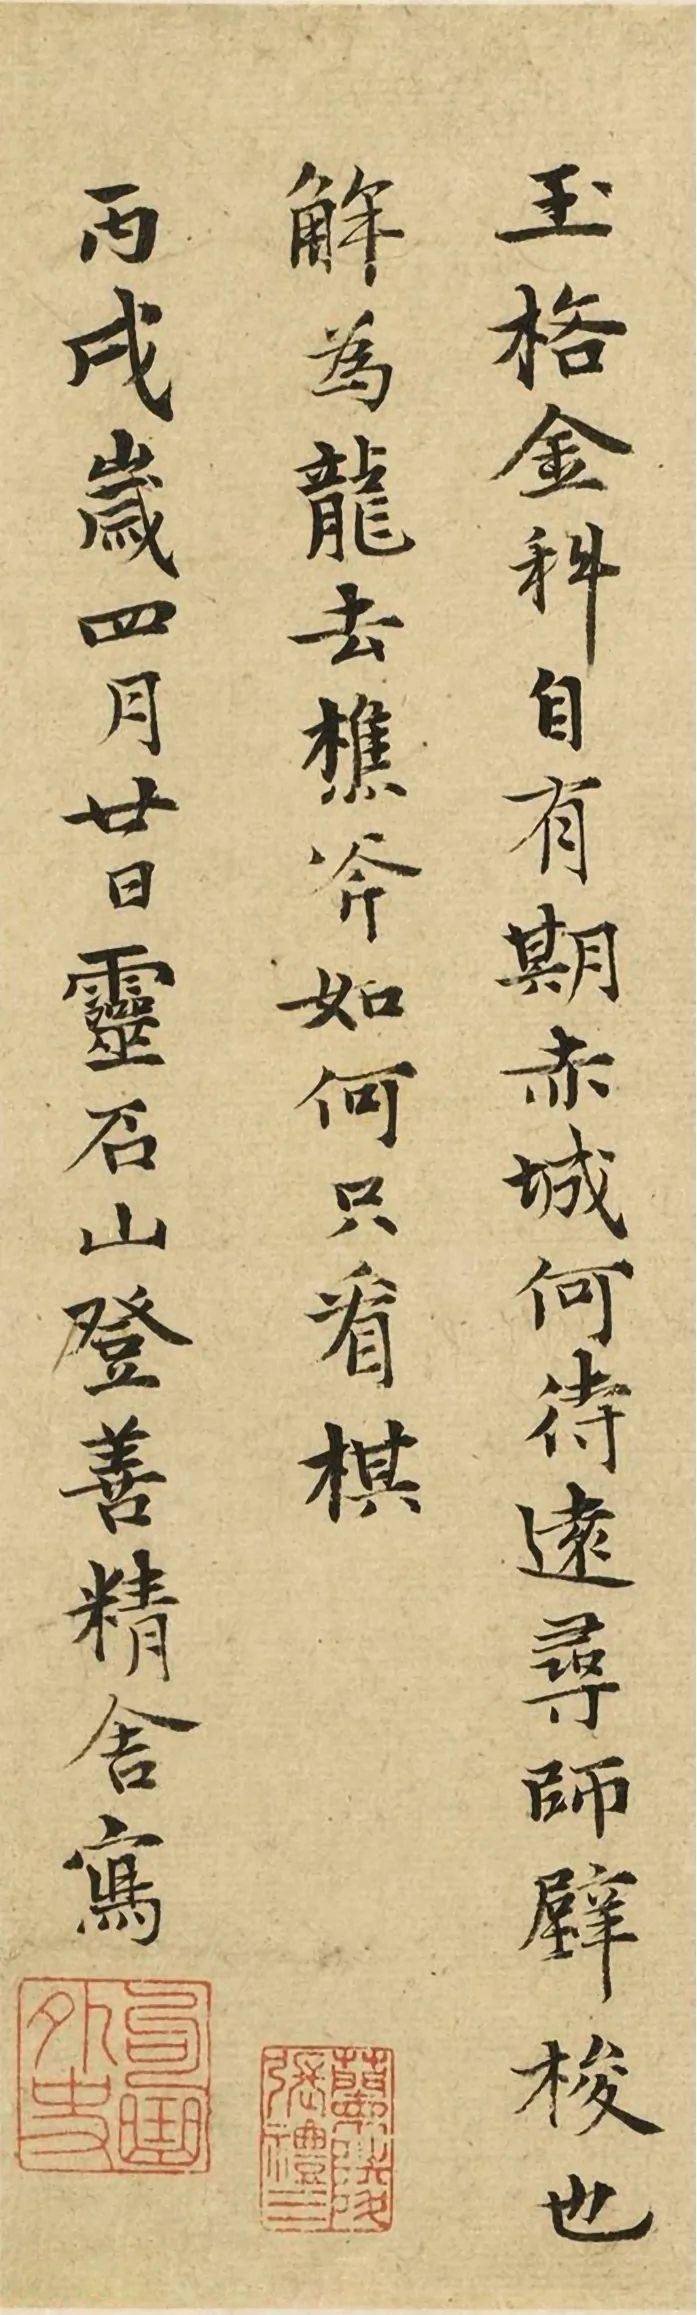 玉格金科自有期赤城何待遠尋師壁梭也
解為龍去樵斧如何只看棋
丙戌歲四月廿日靈石山登善精舍寫
句曲外史
蘭陵張禮三